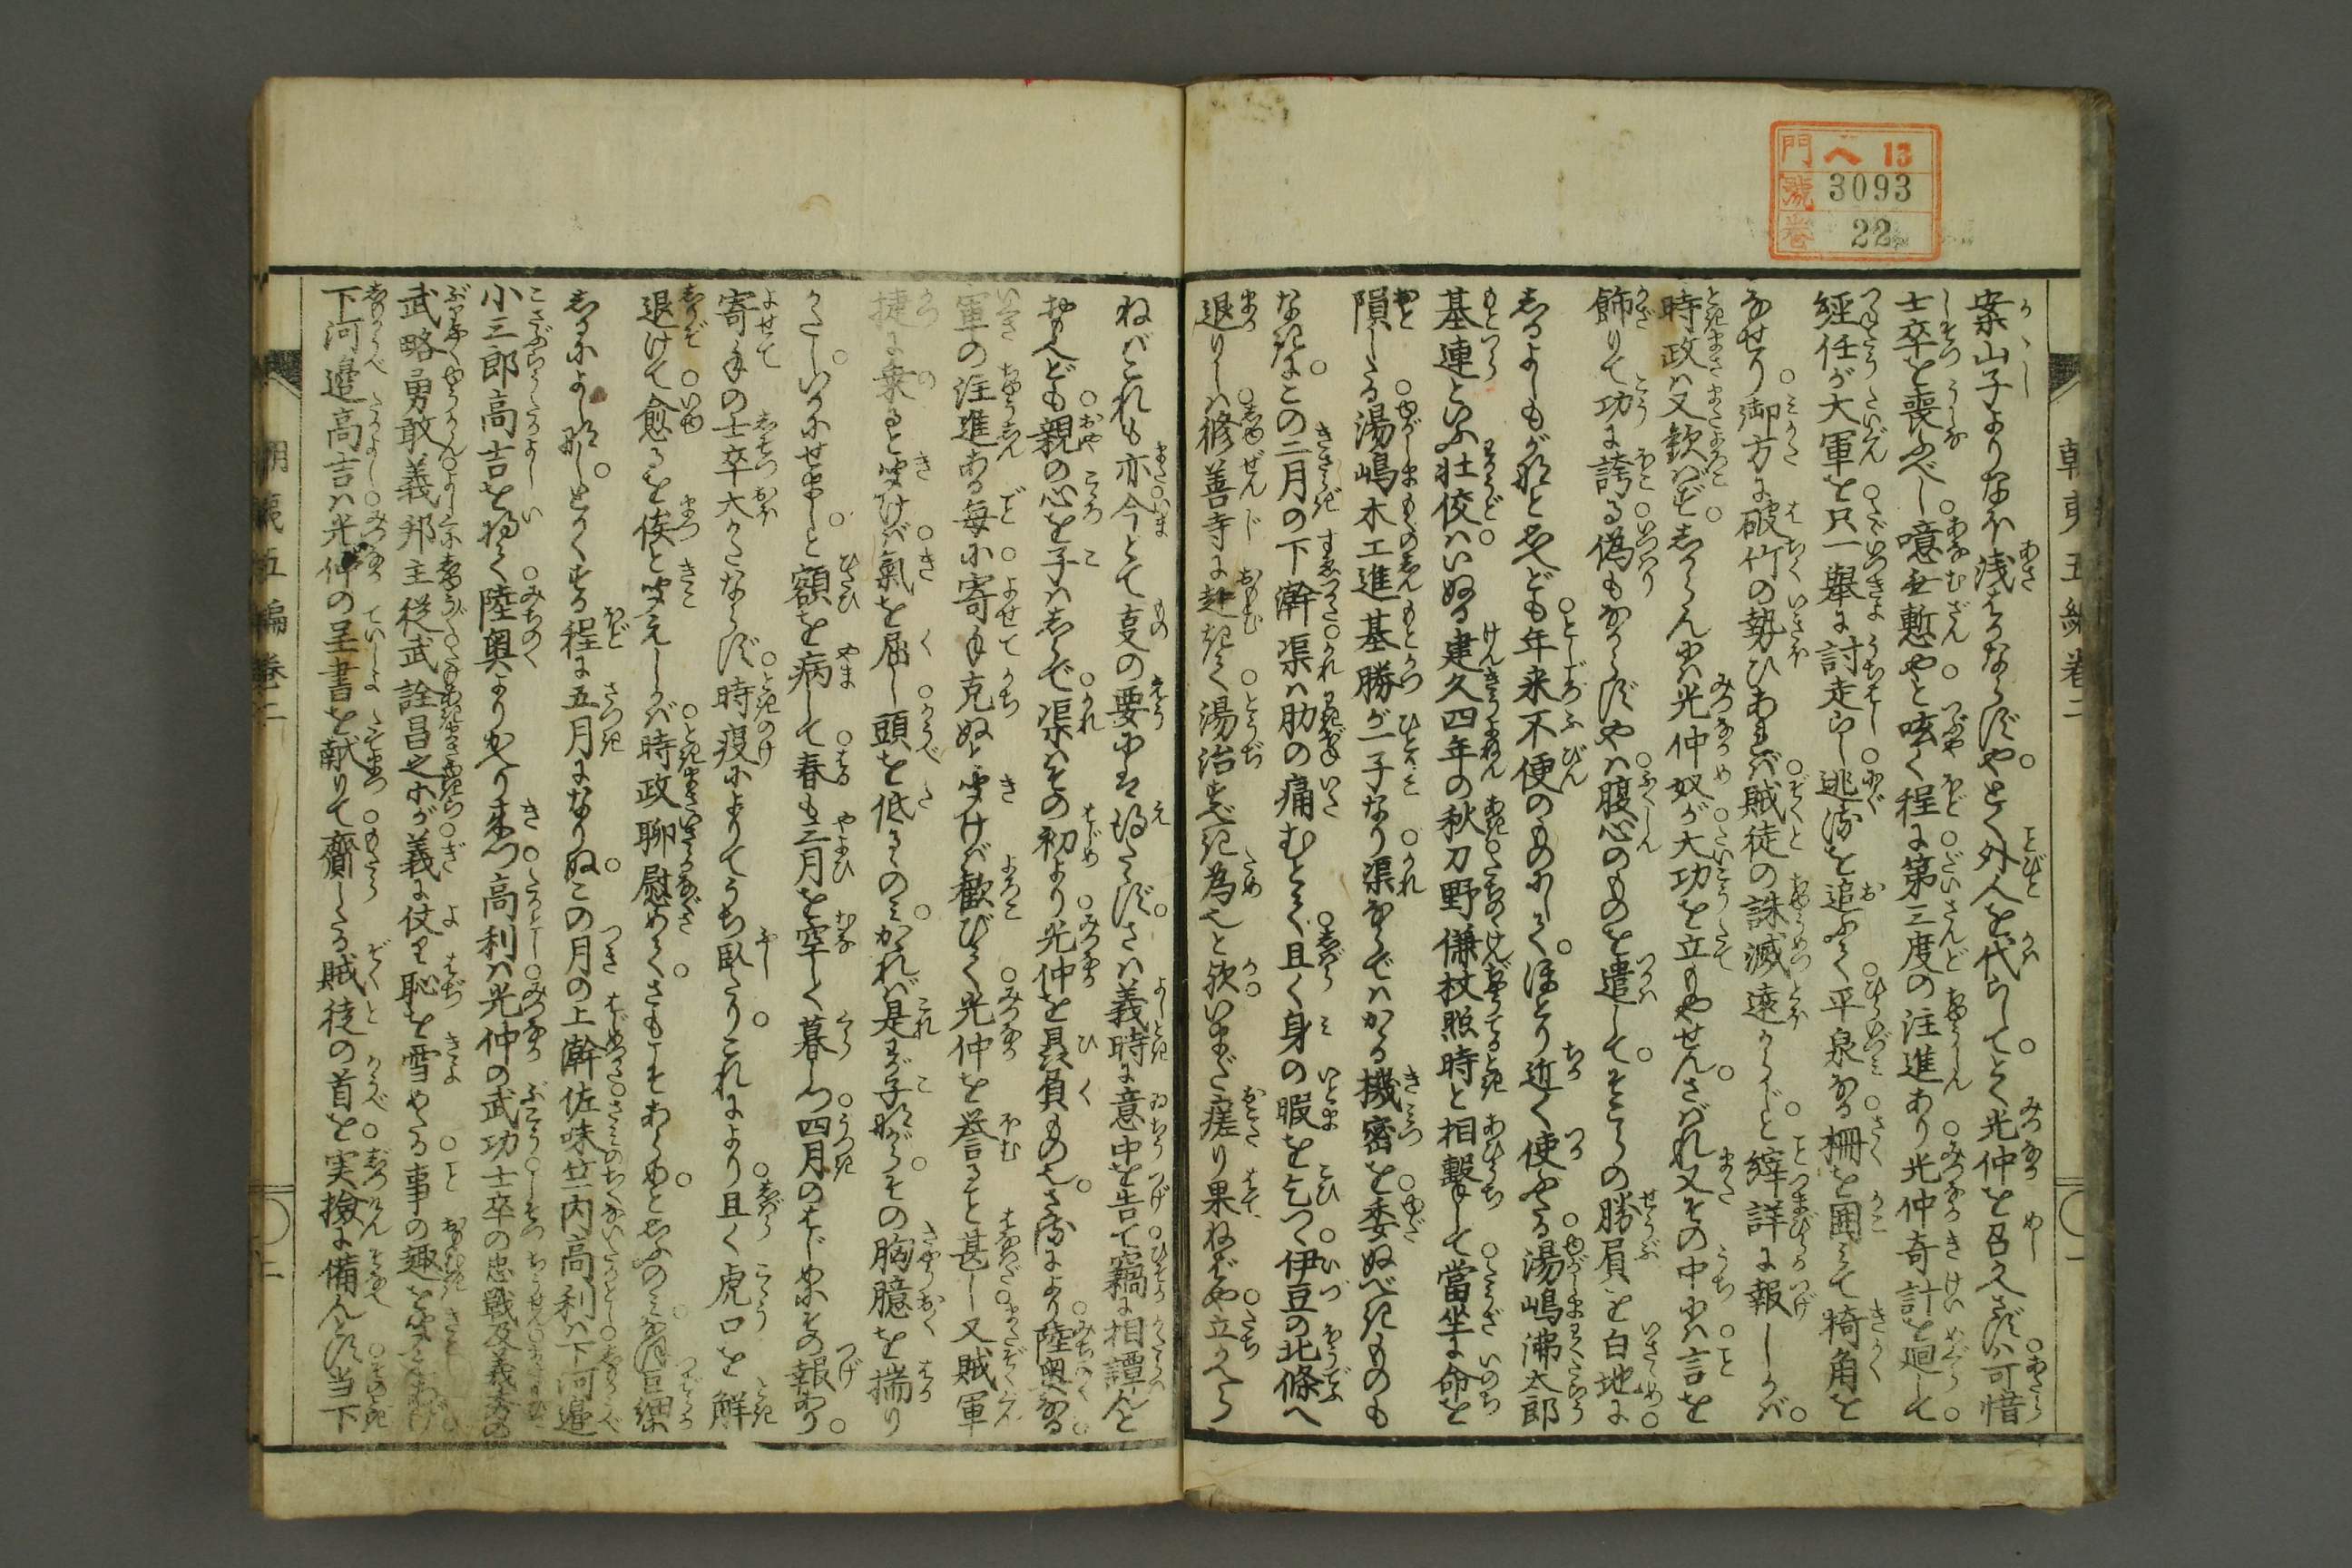 門 ヘ13
號 3093
卷 22
朝夷五編巻二
案山子よりなほ浅はかならずや。とく外人を代らして。とく光仲を召かへさずは可惜
士卒を喪ふべし。噫無慙やと呟く程に。第三度の注進あり。光仲奇計を廻して。
經任が大軍を只一擧に討走らし。逃るを追ふて平泉なる柵を囲みて犄角を
なせり。御方に破竹の勢ひあれば。賊徒の誅滅遠からじと。縡詳に報しかば。
時政は又歓ばず。しからんには光仲奴が大功を立もやせん。さばれ又その中には言を
飾りて功に誇る偽もなからずやは。腹心のものを遣して。そこらの勝屓を白地に
しるよしもがなと思へども。年来不便のものにして。ほとり近く使ふたる。湯嶋沸太郎
基連といふ壮佼は。いぬる建久四年の秋。刀野傔杖照時と相撃して當坐に命を
隕したる。湯嶋木工進基勝が一子なり。渠ならではかゝる機密を委ぬべきものも
なきに。この二月の下澣。渠は肋の痛むとて且く身の暇を乞つ。伊豆の北條へ
退りし。修善寺に赴きて。湯治すべき為也と欤。いまだ瘥り果ねばや。立かへら
ねばこれも亦。今とて急の要には得たゝず。さは義時に意中を告て竊に相譚んと
おもへども。親の心を子はしらで。渠はその初より光仲を贔負もの也。さるにより陸奥なる
軍の注進ある毎に。寄手克ぬと聞けば歓びて。光仲を誉ると甚し。又賊軍
捷に乗ると聞けば。氣を屈し頭を低るゝのみ。かゝれば是わが子ながら。その胸臆を揣り
かたし。いかにせまし。と額を病して。春も三月を空しく暮しつ。四月のはじめにその報あり。
寄手の士卒大かたならず。時疫によりてうち臥たり。これにより且く虎口を解
退けて。愈るを俟と聞えしかば。時政聊慰めて。さもこそあらめと思ふのみ。
しるによしなし。とかくする程に五月になりぬ。この月の上澣。佐味竺内高利は。下河邉
小三郎高吉を将て。陸奥よりかへり来つ。高利は光仲の武功。士卒の忠戦及義秀の
武略勇敢。義邦主従武詮昌之等が義に仗り恥を雪めたる事の趣を
下河邉高吉は。光仲の呈書を献りて。齎したる賊徒の首を実撿に備んとす。當下
朝夷五編巻二
二